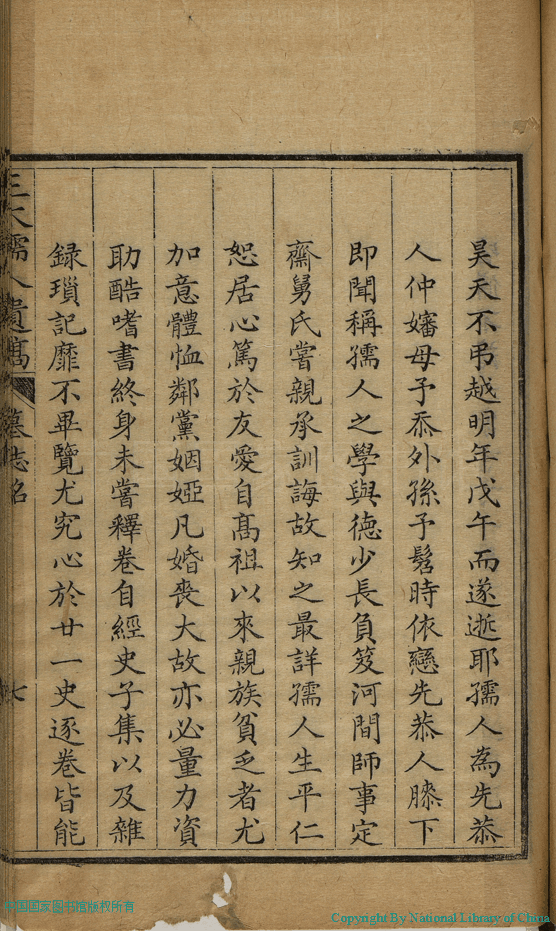 昊天不弔越明年戊午而遂逝耶孺人為先恭
人仲嬸母予忝外孫予髫時依戀先恭人膝下
即聞稱孺人之學與德少長負笈河間師事定
齋舅氏嘗親承訓誨故知之最詳孺人生平仁
恕居心篤於友愛自髙祖以來親族貧乏者尤
加意體恤鄰黨姻婭凡婚喪大故亦必量力資
助酷嗜書終身未嘗釋卷自經史子集以及雜
録瑣記靡不畢覽尤究心於廿一史逐卷皆能
孺人遺髙
墓志名
七
中国国家图书馆版权所有
Copyright By National Library of China